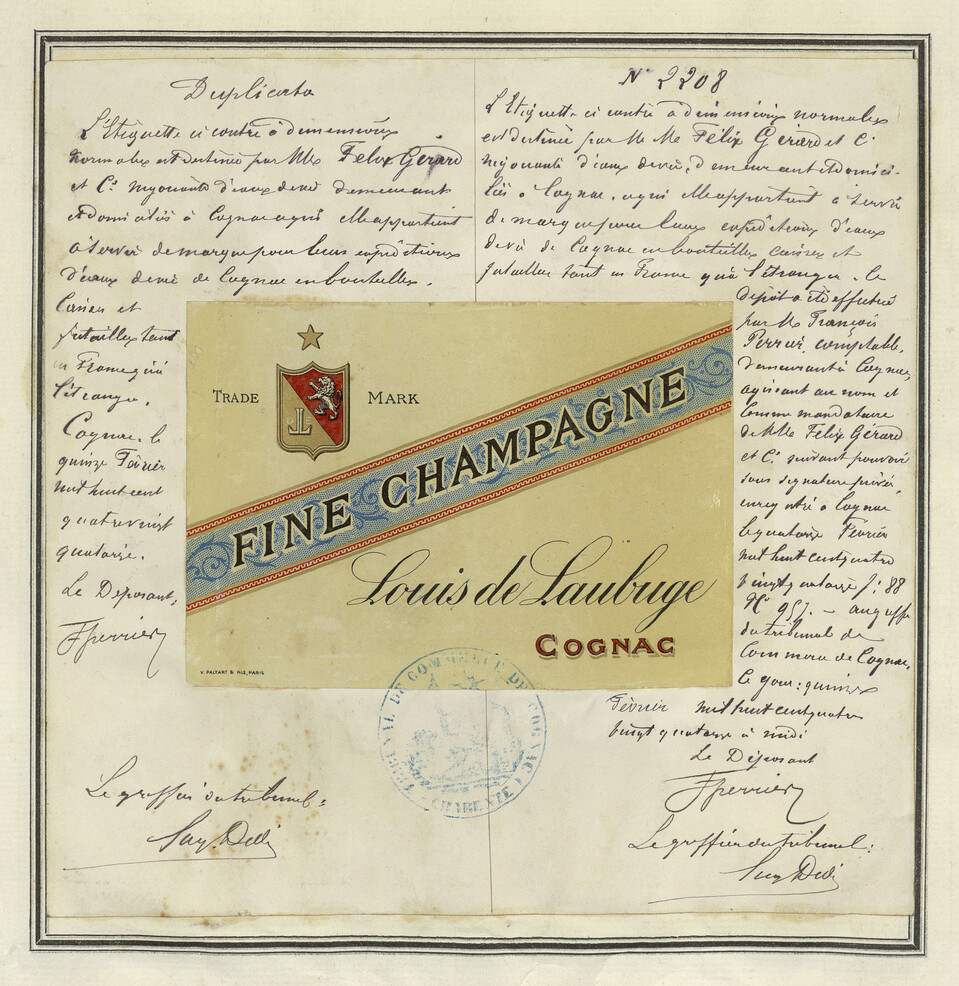 Duplicata
L'Etiquette ci contre à dimensions
normales est destinée par MMrs Félix Gérard
et Cie négociants d'eaux de vie demeurant
et domiciliés à Cognac a qui elle appartient
à servir de marque pour leurs expéditions
d'eaux de vie de Cognac en bouteilles.
Caisses et
futailles tant
en France qu'à
l'étranger.
Cognac, le
quinze Février
mil huit cent
quatre vingt
quatorze.
Le Déposant,
Fperrier
Le greffier du tribunal:
N° 2208
L'Etiquette ci contre à dimensions normales
est destinée par MM Félix Gérard et Cie
négociants d'eaux de vie, demeurant et domici-
liés à Cognac, a qui elle appartient à servir
de marque pour leurs expéditions d'eaux
de vie de Cognac en bouteilles caisses et
futailles tant en France qu'à l'étranger. Ce
dépôt a été effectué
par Mr François
Perrier, comptable,
demeurant à Cognac,
agissant au nom et
comme mandataire
de MMrs Félix Gérard
et Cie suivant pouvoir
sous signature privée,
enregistré à Cognac
le quatorze Février
mil huit cent quatre
vingt quatorze f: 88
N° 957. - au greffe
du tribunal de
Commerce de Cognac,
Ce jour: quinze
Février mil huit cent quatre
vingt quatorze à midi
Le Déposant
Fperrier
Le greffier du tribunal:
TRADE MARK
FINE CHAMPAGNE
Louis de Laubuge
COGNAC
V. PALYART & FILS, PARIS
TRIBUNAL DE COMMERCE DE COGNAC
CHARENTE